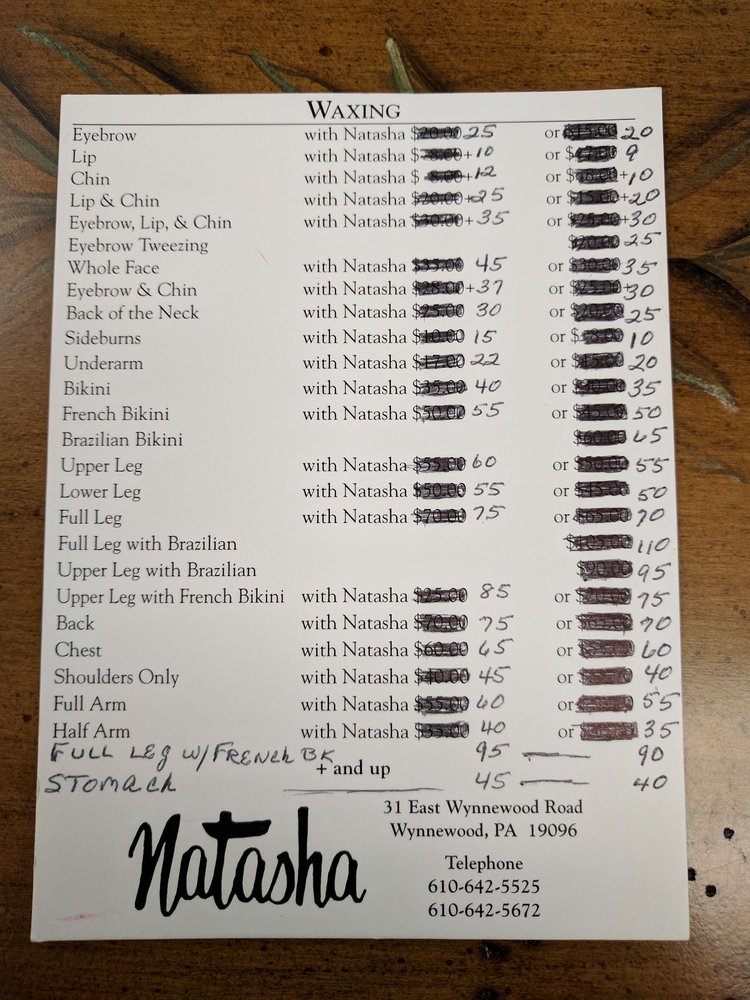 WAXING
Eyebrow with Natasha $20.00 25 or $15.00 20
Lip with Natasha $ 8.00+ 10 or $ 9
Chin with Natasha $ 8.00+ 12 or $ + 10
Lip & Chin with Natasha $20.00+ 25 or $15.00+ 20
Eyebrow, Lip, & Chin with Natasha $30.00+ 35 or $25.00+ 30
Eyebrow Tweezing $20.00 25
Whole Face with Natasha $35.00 45 or $30.00 35
Eyebrow & Chin with Natasha $28.00+ 37 or $25.00+ 30
Back of the Neck with Natasha $25.00 30 or $20.00 25
Sideburns with Natasha $10.00 15 or $ 8.00 10
Underarm with Natasha $17.00 22 or $15.00 20
Bikini with Natasha $35.00 40 or $30.00 35
French Bikini with Natasha $50.00 55 or $45.00 50
Brazilian Bikini $60.00 65
Upper Leg with Natasha $55.00 60 or $50.00 55
Lower Leg with Natasha $50.00 55 or $45.00 50
Full Leg with Natasha $70.00 75 or $65.00 70
Full Leg with Brazilian $105.00 110
Upper Leg with Brazilian $90.00 95
Upper Leg with French Bikini with Natasha $25.00 85 or $20.00 75
Back with Natasha $70.00 75 or $65.00 70
Chest with Natasha $60.00 65 or $ 60
Shoulders Only with Natasha $40.00 45 or 40
Full Arm with Natasha $55.00 60 or 55
Half Arm with Natasha $35.00 40 or 35
FULL LEG W/FRENCH BK 95 — 90
+ and up
STOMACH 45 — 40
31 East Wynnewood Road
Wynnewood, PA 19096
Natasha
Telephone
610-642-5525
610-642-5672